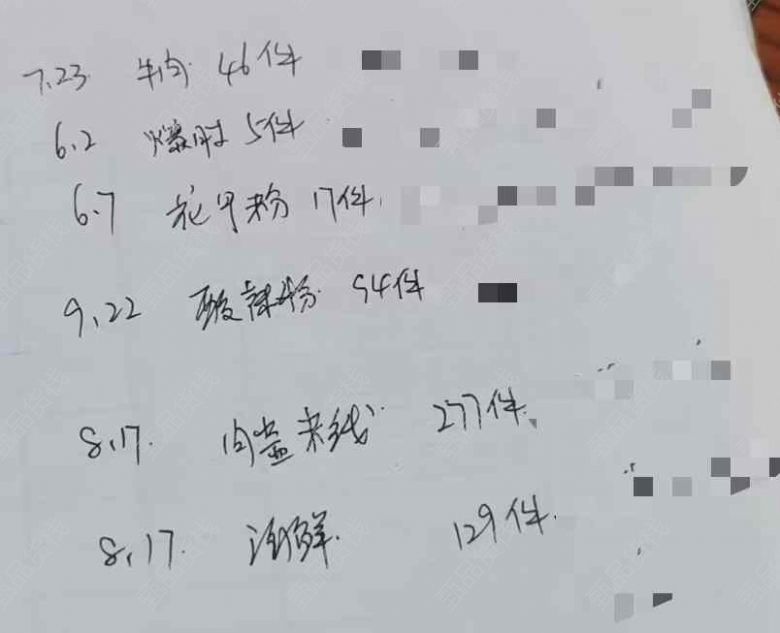 7.23 牛肉 46件
6.2 爆肚 5件
6.7 花甲粉 17件
9.22 酸辣粉 94件
8.17. 肉盖米线 277件
8.17. 海鲜. 129件